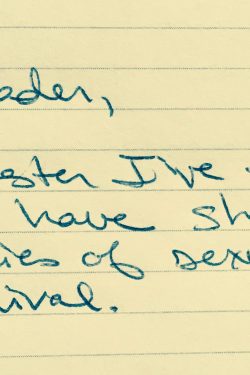 ader,
ester I've
have sh
ies of sex
ival.